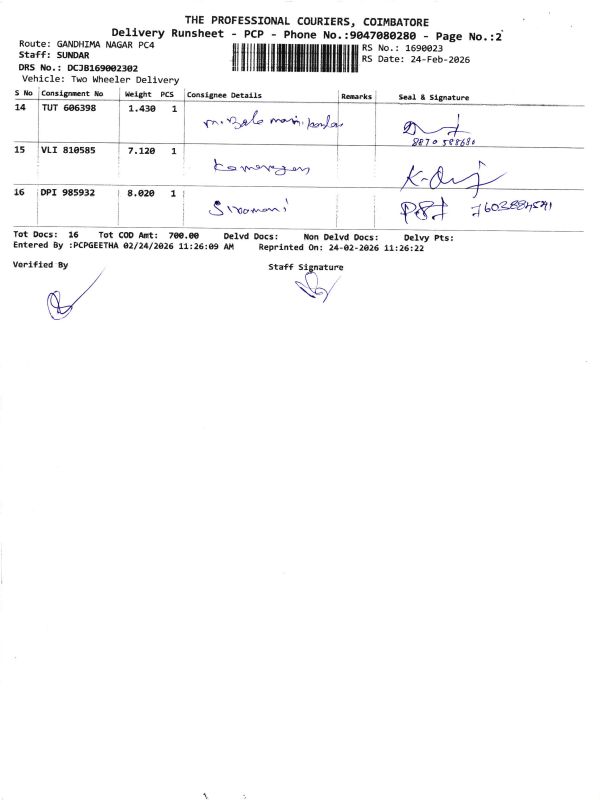 THE PROFESSIONAL COURIERS, COIMBATORE
Delivery Runsheet - PCP - Phone No.:9047080280 - Page No.:2
Route: GANDHIMA NAGAR PC4
RS No.: 1690023
Staff: SUNDAR
RS Date: 24-Feb-2026
DRS No.: DCJB169002302
Vehicle: Two Wheeler Delivery
S No Consignment No Weight PCS Consignee Details Remarks Seal & Signature
14 TUT 606398 1.430 1
8870588680
15 VLI 810585 7.120 1
16 DPI 985932 8.020 1 Sivamani
Tot Docs: 16 Tot COD Amt: 700.00 Delvd Docs: Non Delvd Docs: Delvy Pts:
Entered By :PCPGEETHA 02/24/2026 11:26:09 AM Reprinted On: 24-02-2026 11:26:22
Verified By Staff Signature